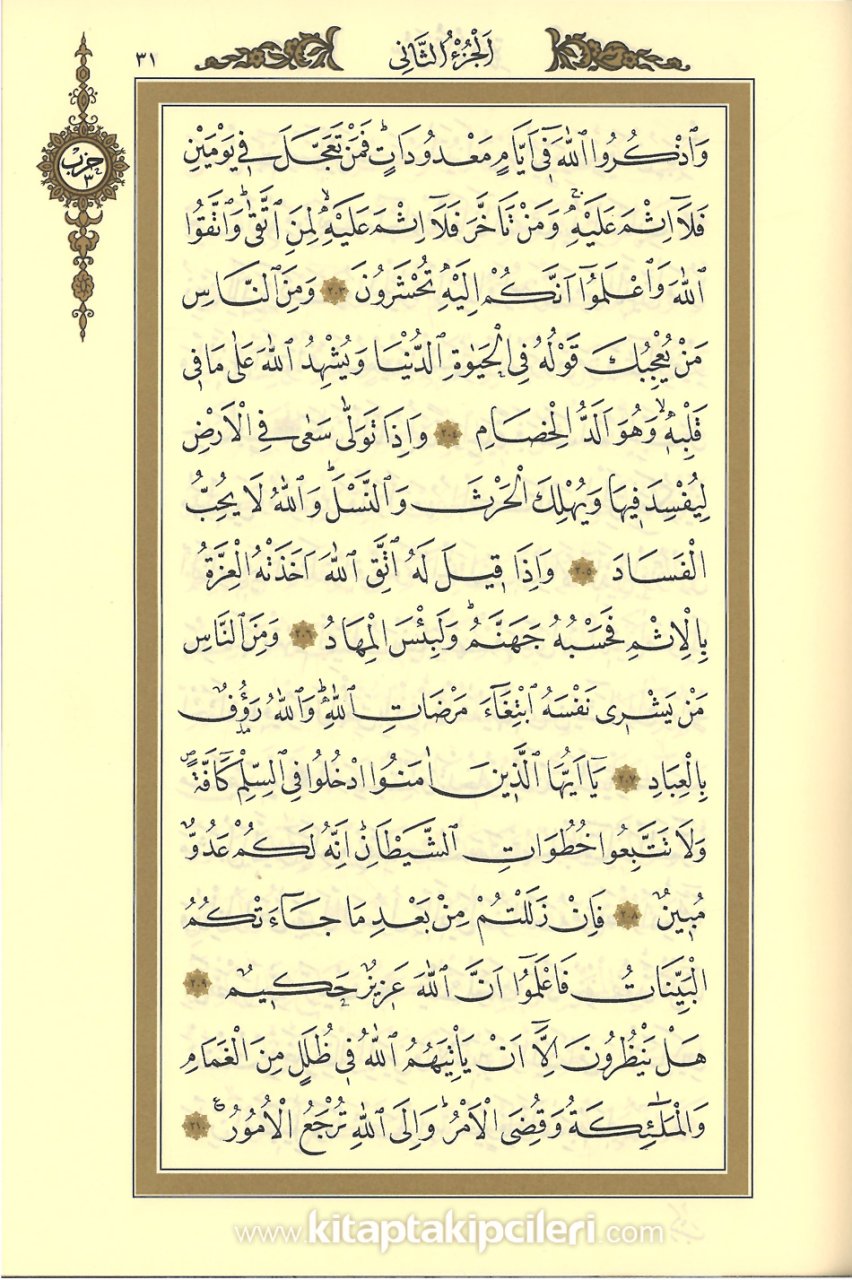 ٣١
اَلْجُزْءُ الثَّانِي
حزب
٣
وَاذْكُرُوا اللّٰهَ فِٓى اَيَّامٍ مَعْدُودَاتٍۜ فَمَنْ تَعَجَّلَ فِى يَوْمَيْنِ
فَلَٓا اِثْمَ عَلَيْهِۚ وَمَنْ تَاَخَّرَ فَلَٓا اِثْمَ عَلَيْهِۙ لِمَنِ اتَّقٰىۜ وَاتَّقُوا
اللّٰهَ وَاعْلَمُٓوا اَنَّكُمْ اِلَيْهِ تُحْشَرُونَ ٢٠٣ وَمِنَ النَّاسِ
مَنْ يُعْجِبُكَ قَوْلُهُ فِى الْحَيٰوةِ الدُّنْيَا وَيُشْهِدُ اللّٰهَ عَلٰى مَا فٖى
قَلْبِهٖۙ وَهُوَ اَلَدُّ الْخِصَامِ ٢٠٤ وَاِذَا تَوَلّٰى سَعٰى فِى الْاَرْضِ
لِيُفْسِدَ فٖيهَا وَيُهْلِكَ الْحَرْثَ وَالنَّسْلَۜ وَاللّٰهُ لَا يُحِبُّ
الْفَسَادَ ٢٠٥ وَاِذَا قٖيلَ لَهُ اتَّقِ اللّٰهَ اَخَذَتْهُ الْعِزَّةُ
بِالْاِثْمِ فَحَسْبُهُ جَهَنَّمُۜ وَلَبِئْسَ الْمِهَادُ ٢٠٦ وَمِنَ النَّاسِ
مَنْ يَشْرٖى نَفْسَهُ ابْتِغَٓاءَ مَرْضَاتِ اللّٰهِۜ وَاللّٰهُ رَؤُفٌ
بِالْعِبَادِ ٢٠٧ يَٓا اَيُّهَا الَّذٖينَ اٰمَنُوا ادْخُلُوا فِى السِّلْمِ كَٓافَّةًۖ
وَلَا تَتَّبِعُوا خُطُوَاتِ الشَّيْطَانِۜ اِنَّهُ لَكُمْ عَدُوٌّ
مُبٖينٌ ٢٠٨ فَاِنْ زَلَلْتُمْ مِنْ بَعْدِ مَا جَٓاءَتْكُمُ
الْبَيِّنَاتُ فَاعْلَمُٓوا اَنَّ اللّٰهَ عَزٖيزٌ حَكٖيمٌ ٢٠٩
هَلْ يَنْظُرُونَ اِلَّٓا اَنْ يَأْتِيَهُمُ اللّٰهُ فٖى ظُلَلٍ مِنَ الْغَمَامِ
وَالْمَلٰٓئِكَةُ وَقُضِىَ الْاَمْرُۜ وَاِلَى اللّٰهِ تُرْجَعُ الْاُمُورُ ع ٢١٠
www.kitaptakipcileri.com